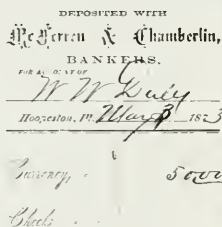 DEPOSITED WITH
McFerren & Chamberlin,
BANKERS.
FOR ACCOUNT OF
W W Duly
Hoopeston, Ill. May 3 1873
Currency, 5000
Checks